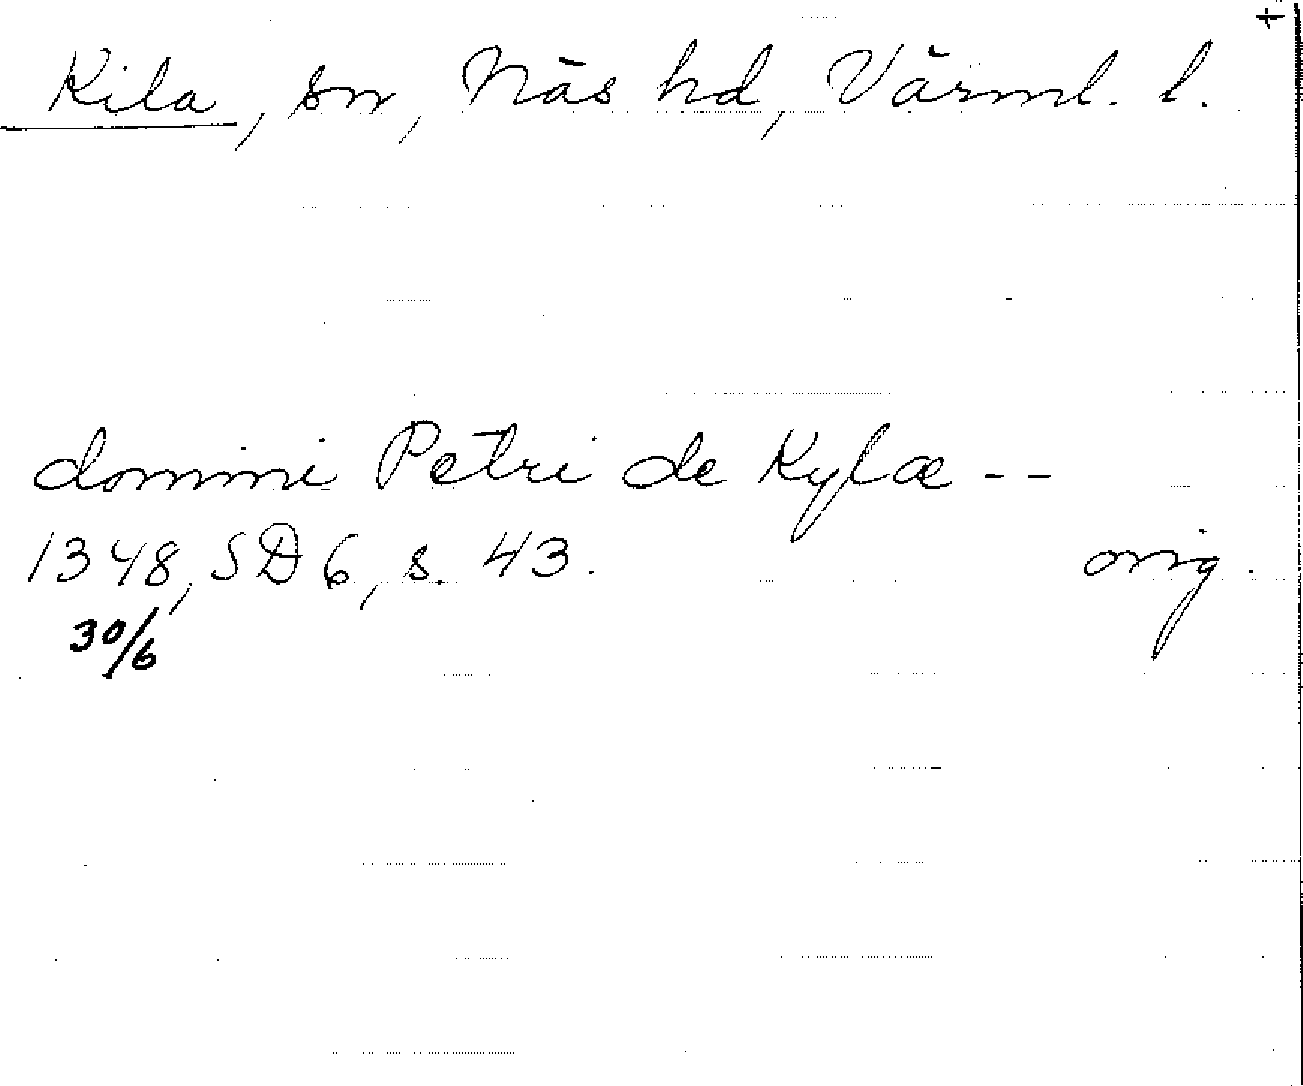 +
Kila, sn, Näs hd, Värml. l.
domini Petri de Kylæ --
1348, SD 6, s. 43. orig.
30/6